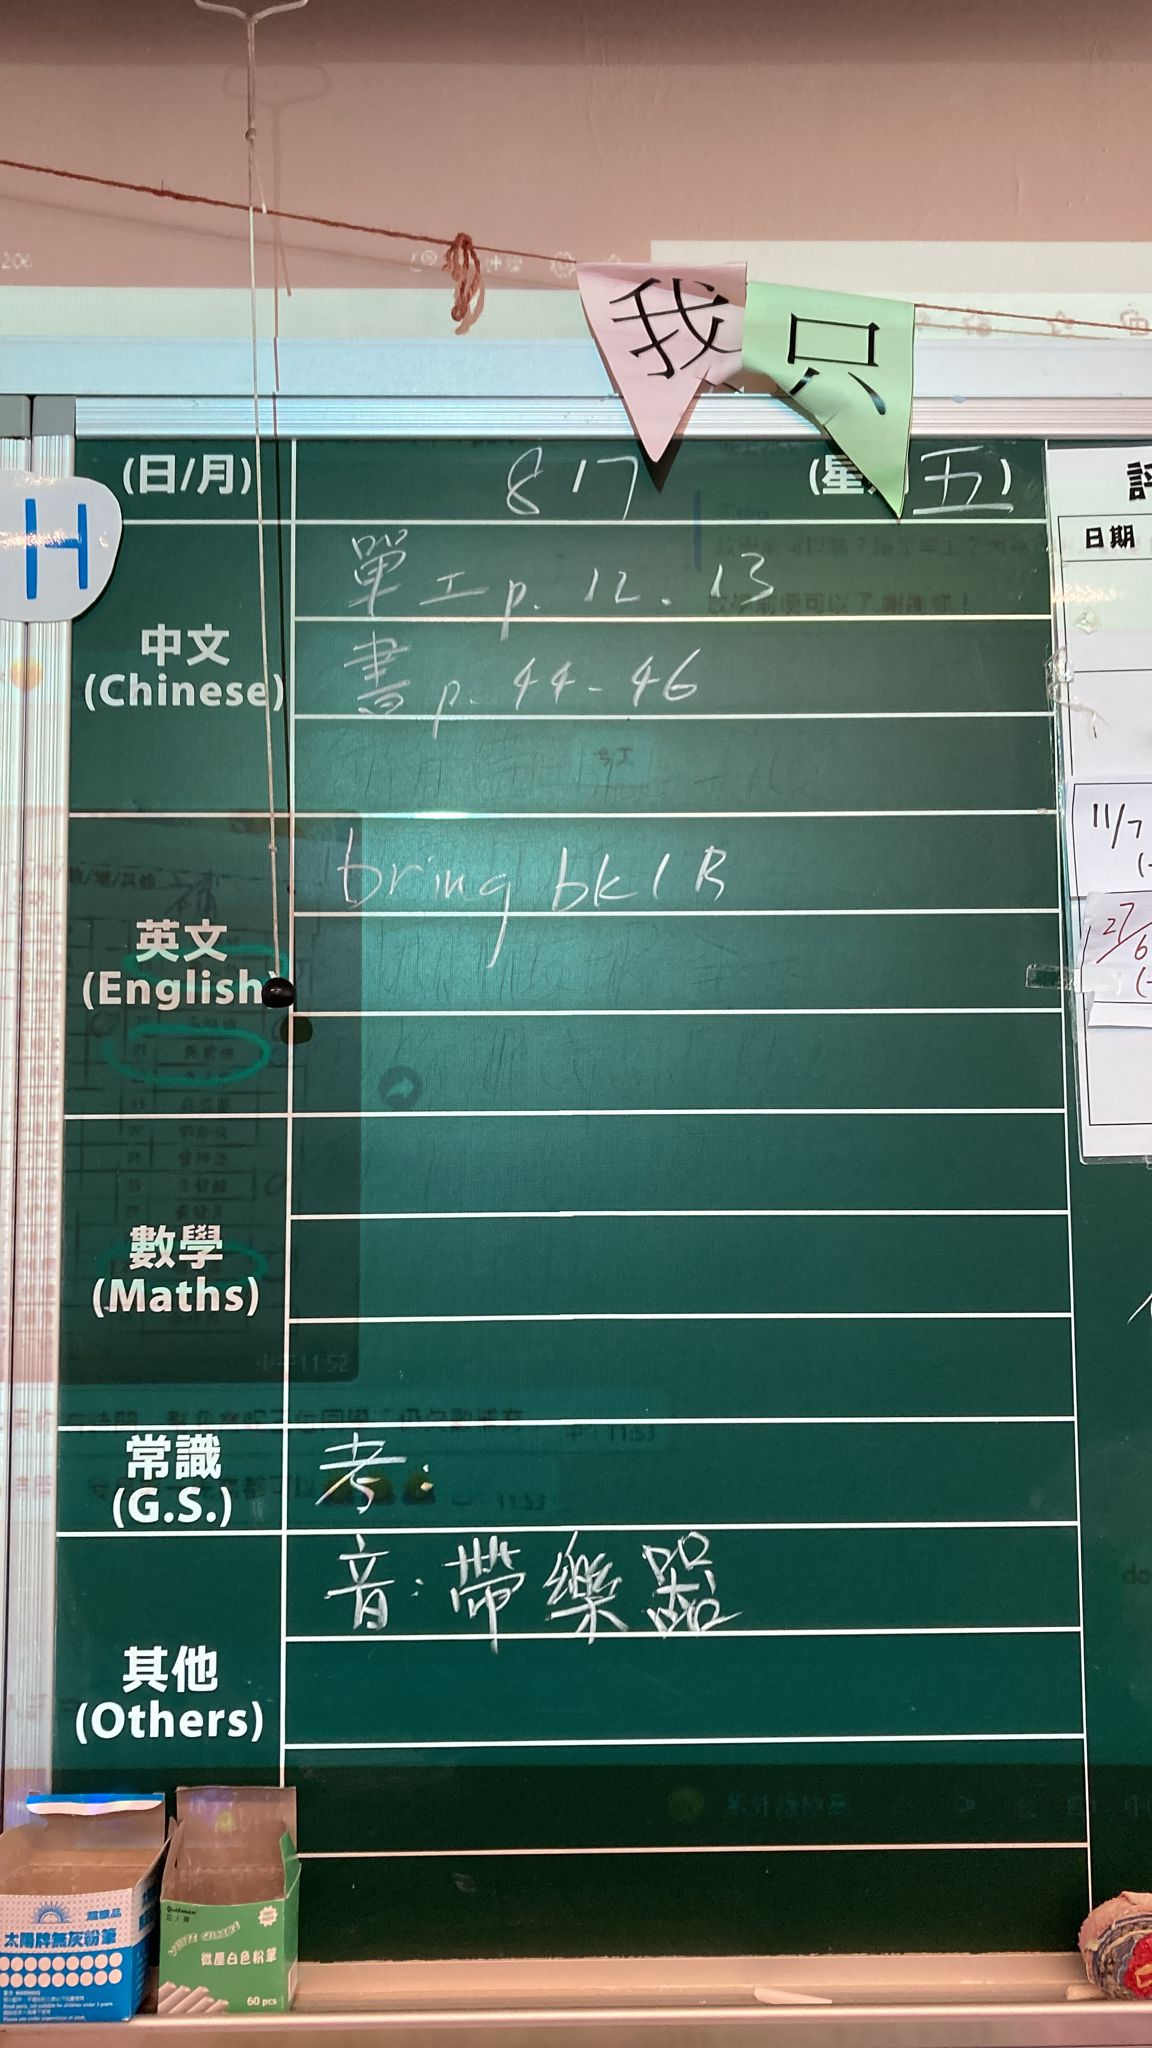 我只
(日/月) 8/7 (星 五)
H
評
日期
中文
(Chinese)
單工p. 12. 13
書p. 44-46
11/7
英文
(English)
bring bk 1B
27/6
數學
(Maths)
11:52
11:53
常識
(G.S.)
考:
11:53
其他
(Others)
音:帶樂器
太陽牌無灰粉筆
微塵白色粉筆
60 pcs